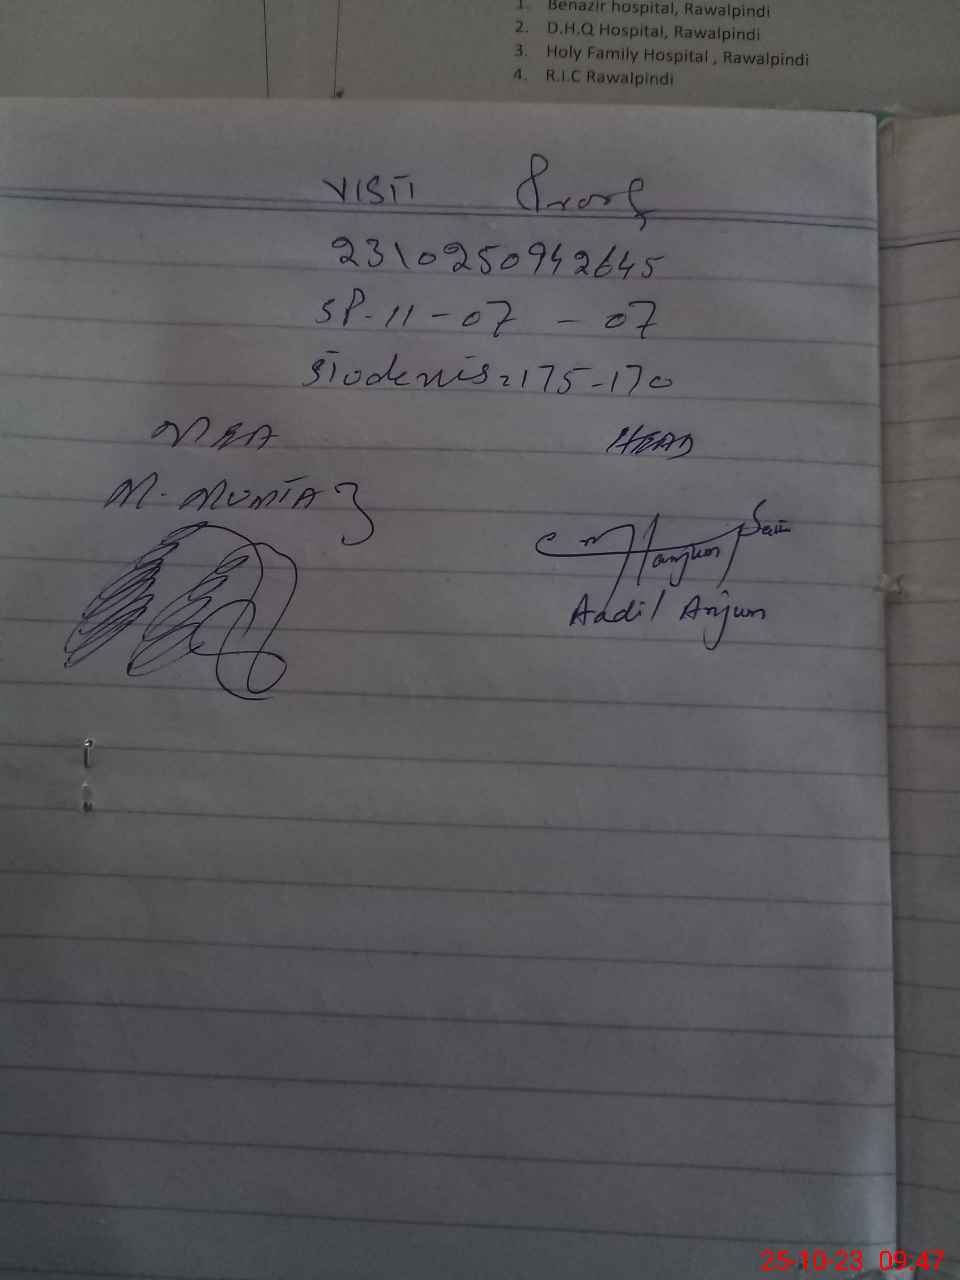 1. Benazir hospital, Rawalpindi
2. D.H.Q Hospital, Rawalpindi
3. Holy Family Hospital , Rawalpindi
4. R.I.C Rawalpindi
VISIT Proof
2310250942645
SP-11-07 - 07
Students=175-170
MEA HEAD
M. MUMTAZ
Aadil Anjum
25-10-23 09:47